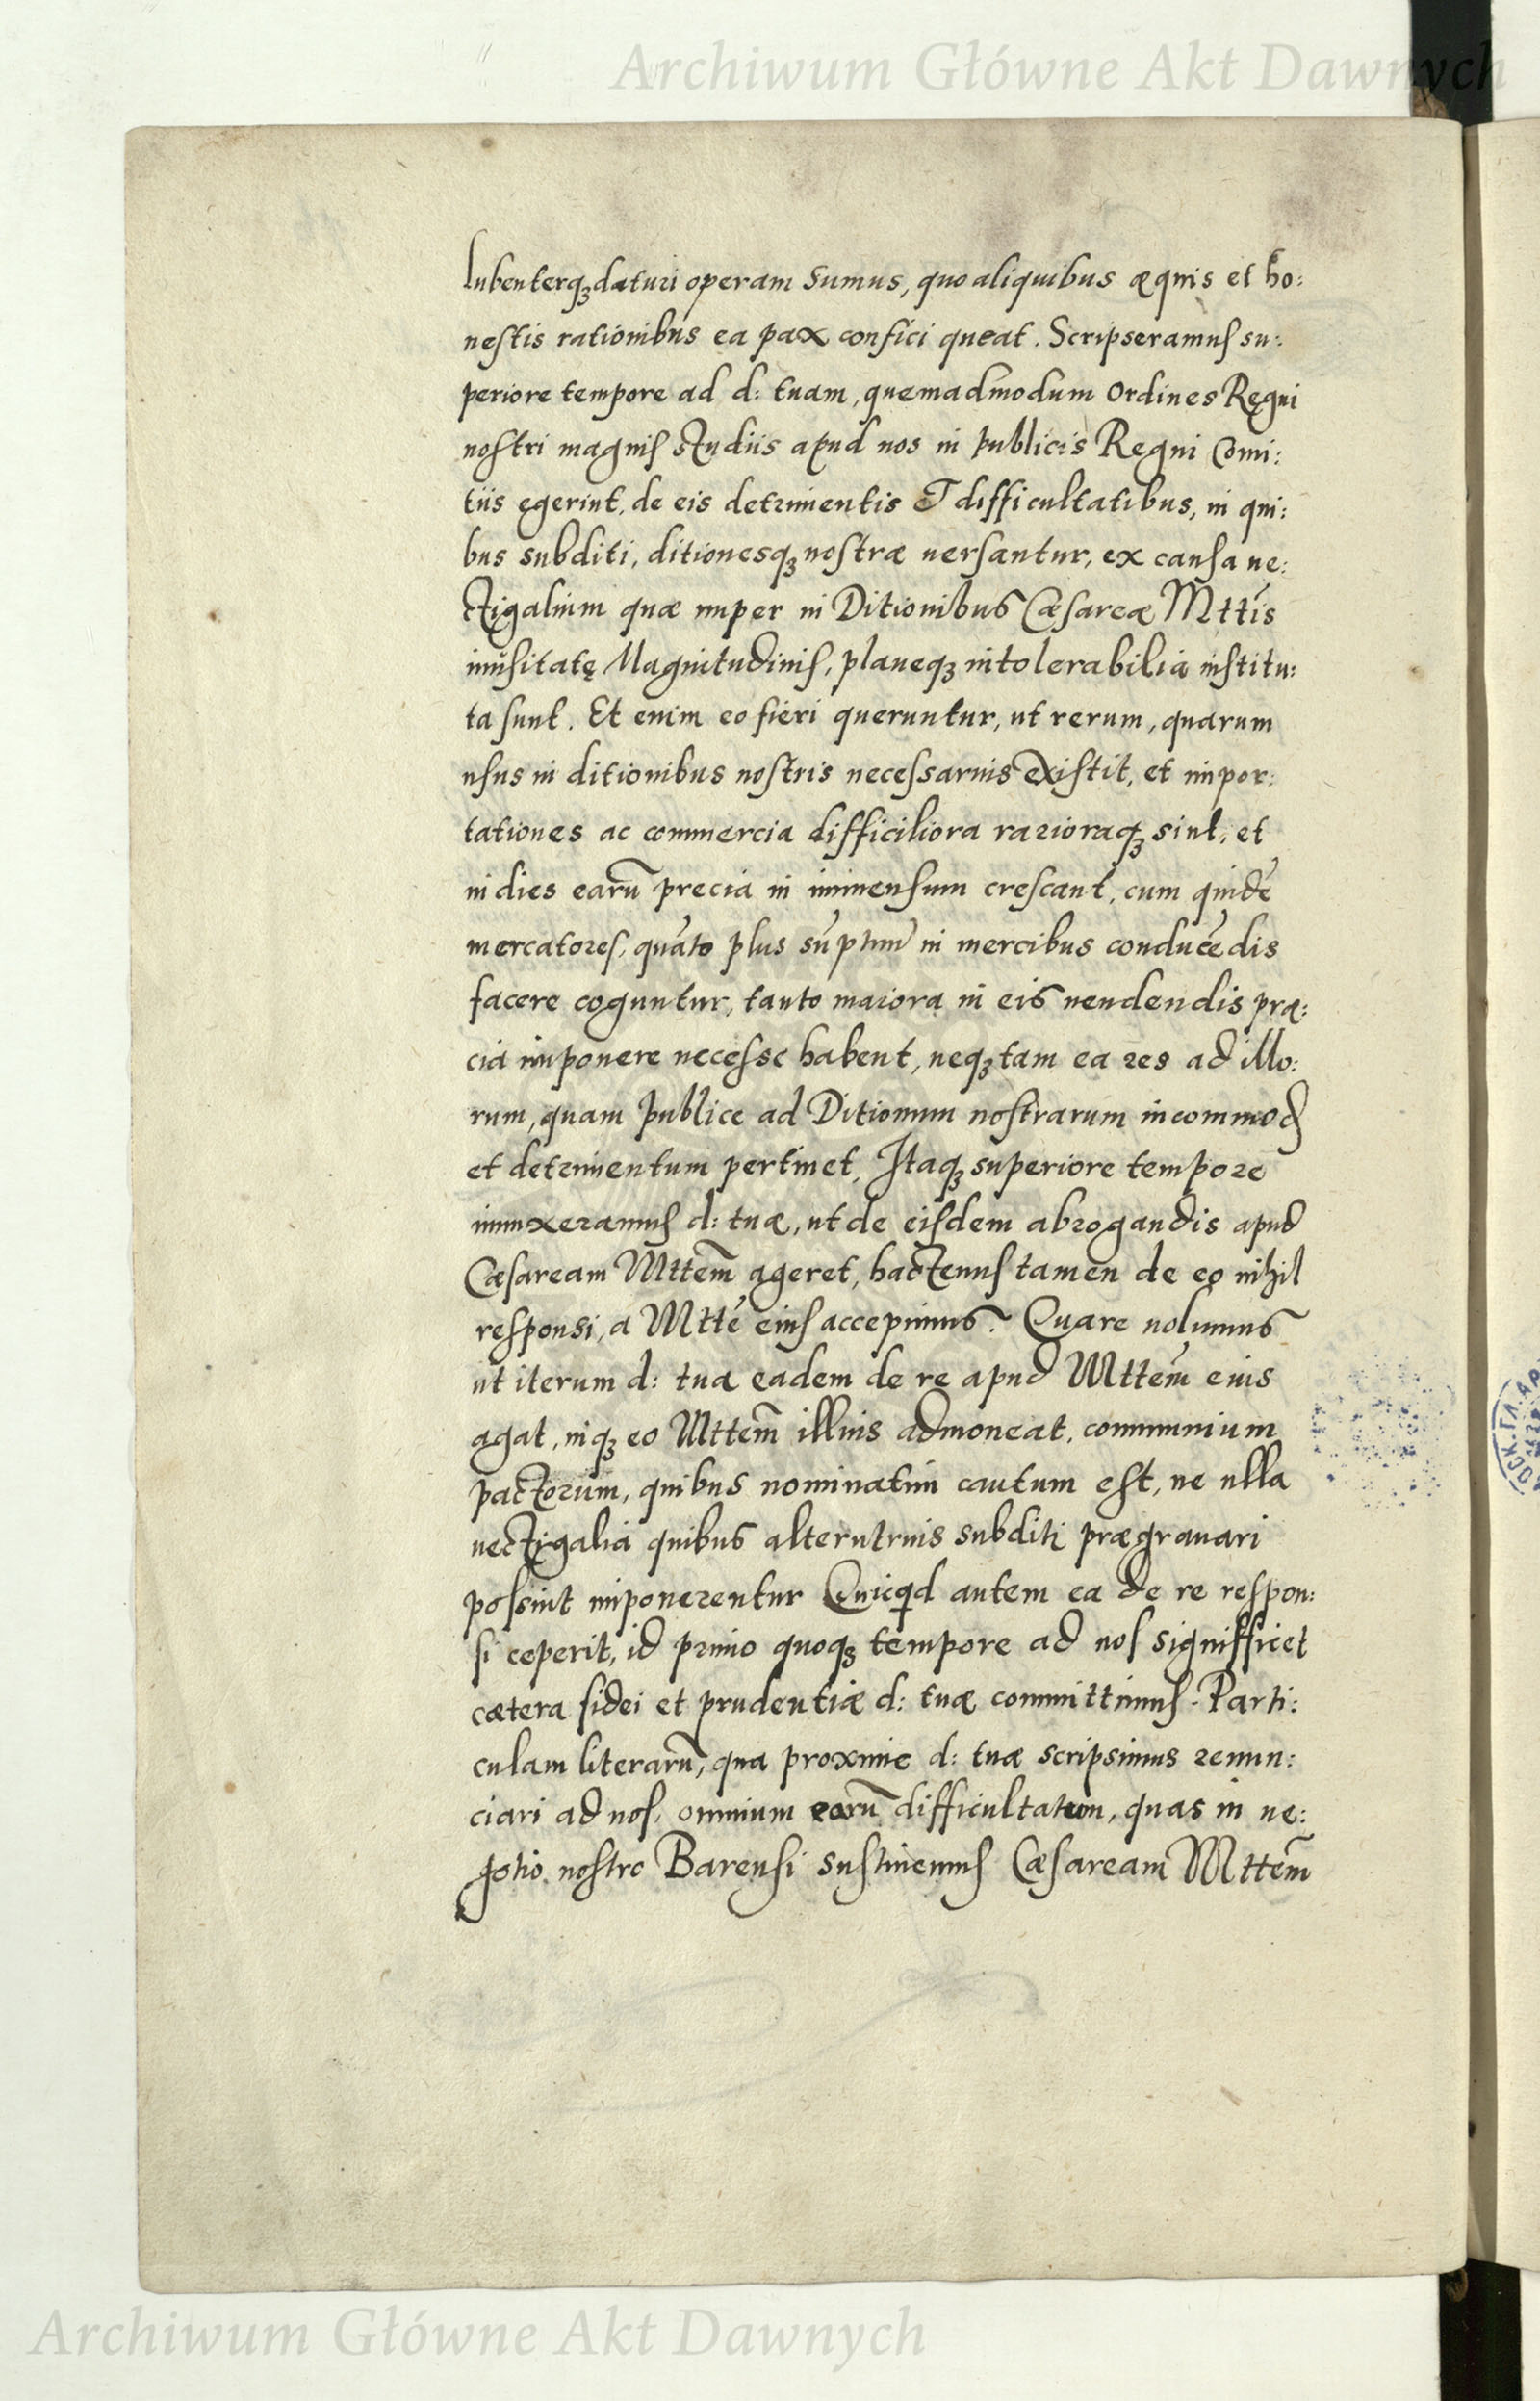 Archiwum Główne Akt Dawnych
lubenterq₃ daturi operam sumus, quo aliquibus æquis et ho:
nestis rationibus ea pax confici queat. Scripseramus su:
periore tempore ad d: tuam, quemadmodum Ordines Regni
nostri magnis studiis apud nos in publicis Regni Comi:
tiis egerint, de eis detrimentis Et difficultatibus, in qui:
bus subditi, ditionesq₃ nostræ uersantur, ex causa ue:
ctigalium quæ nuper in Ditionibus Cæsareæ Mttis
inusitatę Magnitudinis, planeq₃ intolerabilia institu:
ta sunt. Et enim eo fieri queruntur, ut rerum, quarum
usus in ditionibus nostris necessarius existit, et impor:
tationes ac commercia difficiliora rarioraq₃ sint, et
in dies earū precia in immensum crescant, cum quidē
mercatores, quāto plus sūptuū in mercibus conducēdis
facere coguntur, tanto maiora in eis uendendis præ:
cia imponere necesse habent, neq₃ tam ea res ad illo:
rum, quam publice ad Ditionum nostrarum incommod
et detrimentum pertinet, Itaq₃ superiore tempore
iniunxeramus d: tuæ, ut de eisdem abrogandis apud
Cæsaream Mttem̄ ageret, hactenus tamen de eo nihil
responsi, a Mttē eius accepimus. Quare uolumus
ut iterum d: tua eadem de re apud Mttem̄ eius
agat, inq₃ eo Mttem̄ illius admoneat, communium
pactorum, quibus nominatim cautum est, ne ulla
uectigalia quibus alterutrius subditi prægrauari
possint imponerentur Quicqd autem ea de re respon:
si ceperit, id primo quoq₃ tempore ad nos signifficet
cætera fidei et prudentiæ d: tuæ committimus. Parti:
culam literarū, qua proxime d: tuæ scripsimus renun:
ciari ad nos, omnium earū difficultatum, quas in ne:
gotio nostro Barensi sustinemus Cæsaream Mttem̄
Archiwum Główne Akt Dawnych